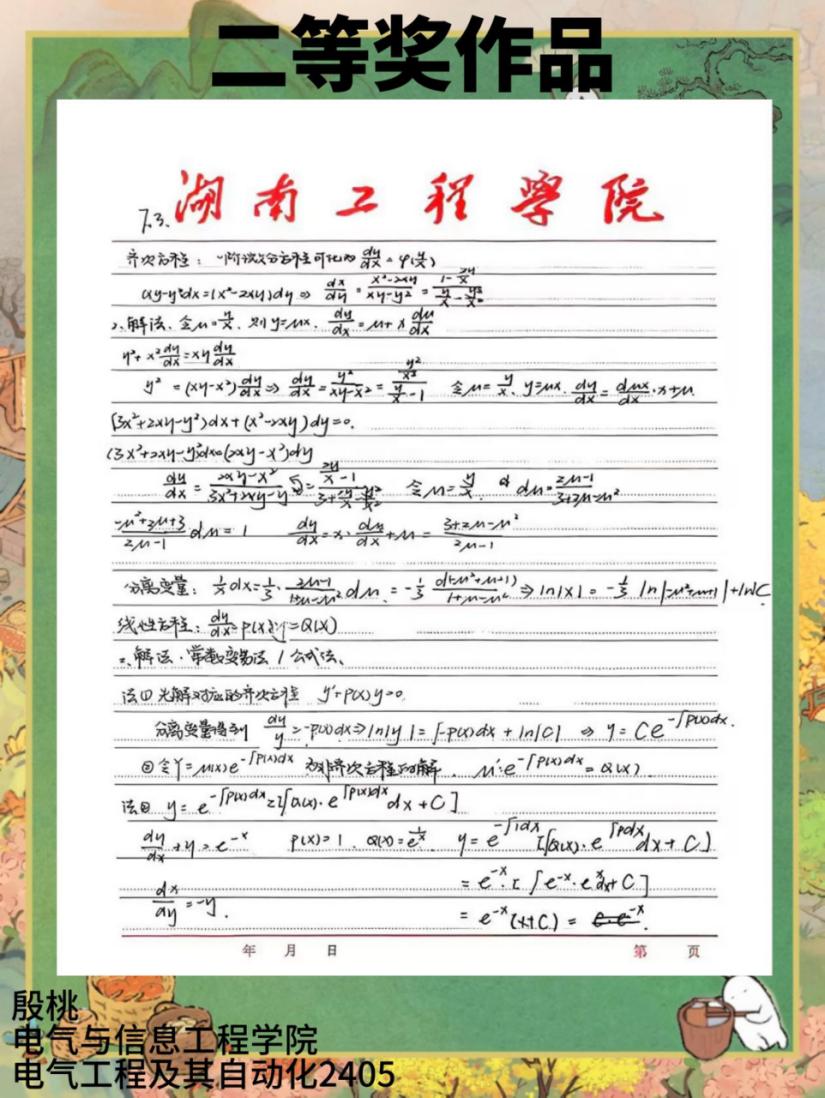 二等奖作品
湖南工程学院
7.3.
齐次方程：一阶微分方程可化为 dy/dx = φ(y/x)
(xy-y²)dx=(x²-2xy)dy ⇒ dx/dy = (x²-2xy)/(xy-y²) =
2、解法、令μ=y/x, 则y=μx. dy/dx=μ+x dμ/dx
y²+x² dy/dx = xy dy/dx
y² = (xy-x²) dy/dx ⇒ dy/dx = y²/(xy-x²) = (y²/x²)/(y/x -1) 令μ=y/x, y=μx. dy/dx = dμx/dx · x+μ
(3x²+2xy-y²)dx+(x²-2xy)dy=0.
(3x²+2xy-y²)dx=(2xy-x²)dy
dy/dx = (2xy-x²)/(3x²+2xy-y) 令μ=y/x. dμ= (2μ-1)/(3+2μ-μ²)
(-μ²+2μ+3)/(2μ-1) dμ=1 dy/dx = x· dμ/dx +μ = (3+2μ-μ²)/(2μ-1)
分离变量： 1/x dx = 1/3 · (2μ-1)/(1+μ-μ²) dμ = -1/3 d(-μ²+μ+1)/(1+μ-μ²) ⇒ ln|x| = -1/3 ln|-μ²+μ+1|+lnC
线性方程：dy/dx + p(x)y=Q(x)
二、解法·常数变易法/公式法、
法① 先解对应的齐次方程 y'+p(x)y=0.
分离变量得到 dy/y = -p(x)dx ⇒ ln|y| = ∫-p(x)dx + ln|C| ⇒ y = Ce^{-∫p(x)dx}.
② 令Y=μ(x)e^{-∫p(x)dx} 为非齐次方程的解. μ'·e^{-∫p(x)dx} = Q(x)
法② y = e^{-∫p(x)dx} [∫Q(x)·e^{∫p(x)dx} dx + C]
dy/dx + y = e^{-x} p(x)=1. Q(x)=e^{-x}. y = e^{-∫1dx} [∫Q(x)·e^{∫pdx} dx + C]
= e^{-x}·[∫e^{-x}·e^{x}dx+C]
dx/dy = -y.
= e^{-x}(x+C) =
年 月 日 第 页
殷桃
电气与信息工程学院
电气工程及其自动化2405